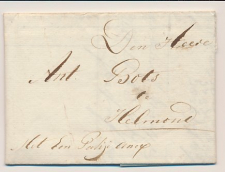 Den Heere
Ant Bots
te
Helmond
Met een